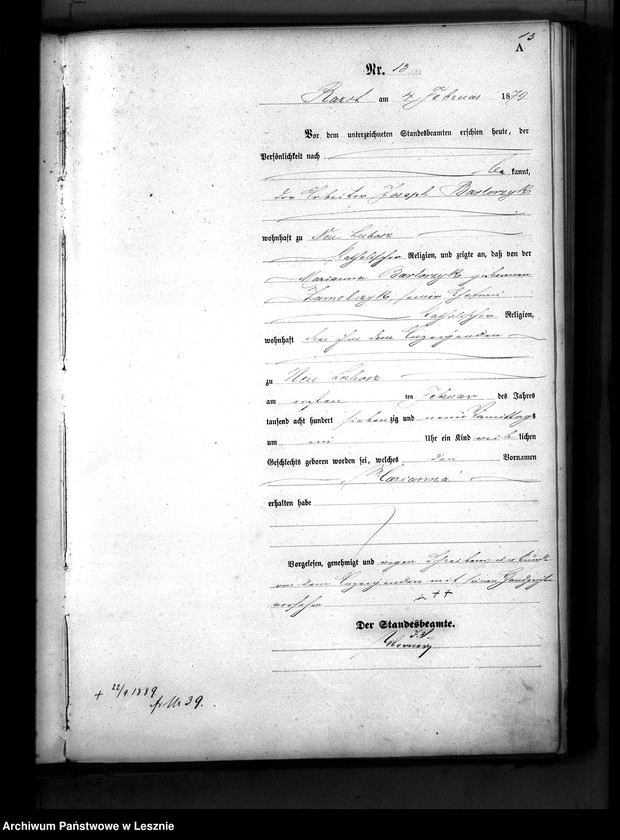 13
A
Nr. 13
am 4 Februar 1879
Vor dem unterzeichneten Standesbeamten erschien heute, der
Persönlichkeit nach
be kannt,
der Arbeiter Joseph Bartorzyk
wohnhaft zu Neu Lubosz
katholischer Religion, und zeigte an, daß von der
Marianna Bartorzyk geborenen
seiner Ehefrau
katholischer Religion,
wohnhaft bei ihm dem Anzeigenden
zu Neu Lubosz
am ersten ten Februar des Jahres
tausend acht hundert siebenzig und neun Vormittags
um ein Uhr ein Kind weiblichen
Geschlechts geboren worden sei, welches den Vornamen
Marianna
erhalten habe
Vorgelesen, genehmigt und wegen Schreibensunkunde
von dem Anzeigenden mit seinem Handzeichen
versehen +++
Der Standesbeamte.
+ 22/9 1889
Nr 39.
Archiwum Państwowe w Lesznie